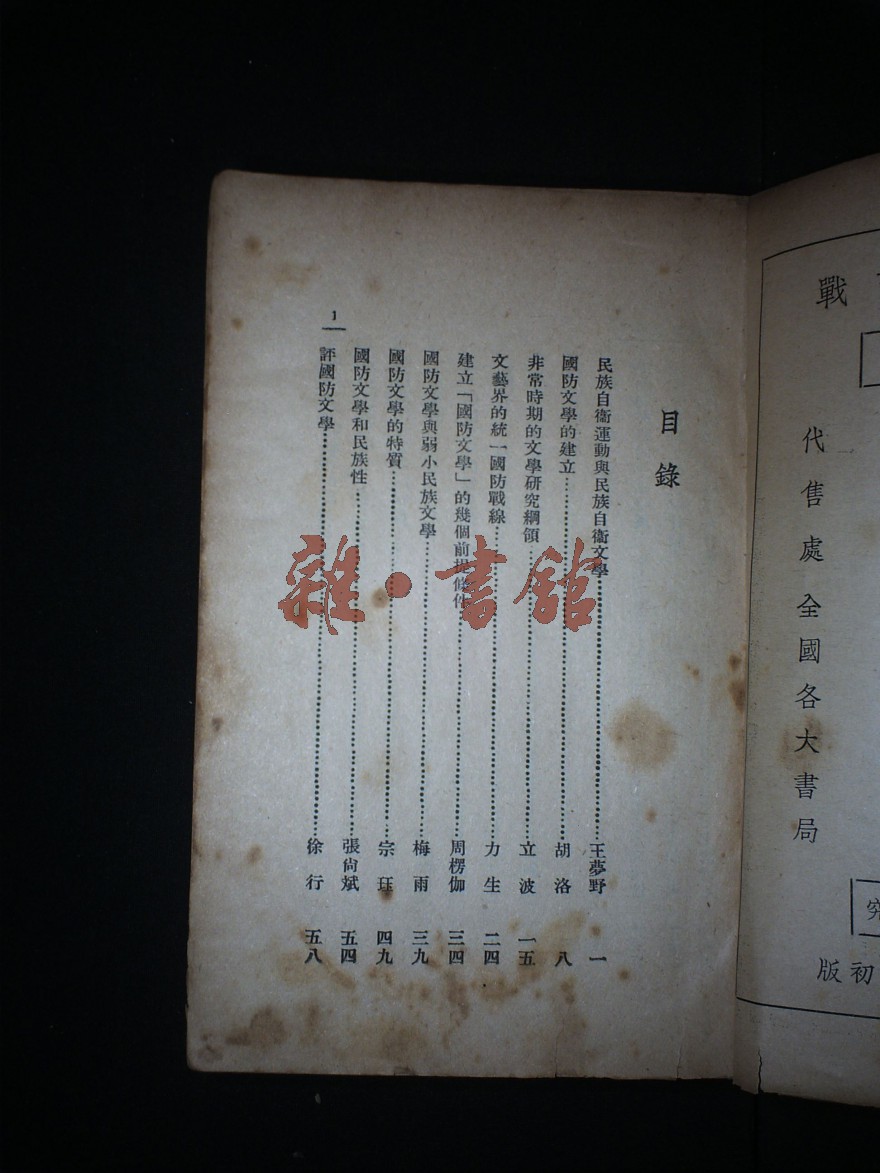 戰
代售處全國各大書局
究
初版
目錄
民族自衞運動與民族自衞文學……王夢野 一
國防文學的建立……胡洛 八
非常時期的文學研究綱領……立波 一五
文藝界的統一國防戰線……力生 二四
建立「國防文學」的幾個前提條件……周楞伽 三四
國防文學與弱小民族文學……梅雨 三九
國防文學的特質……宗珏 四九
國防文學和民族性……張尙斌 五四
評國防文學……徐行 五八
1
雜·書館